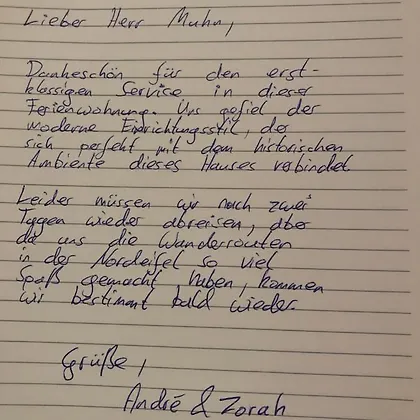 Lieber Herr Muhn,
Dankeschön für den erst-
klassigen Service in dieser
Ferienwohnung. Uns gefiel der
moderne Einrichtungsstil, der
sich perfekt mit dem historischen
Ambiente dieses Hauses verbindet.
Leider müssen wir nach zwei
Tagen wieder abreisen, aber
da uns die Wanderrouten
in der Nordeifel so viel
Spaß gemacht haben, kommen
wir bestimmt bald wieder.
Grüße,
André & Zorah